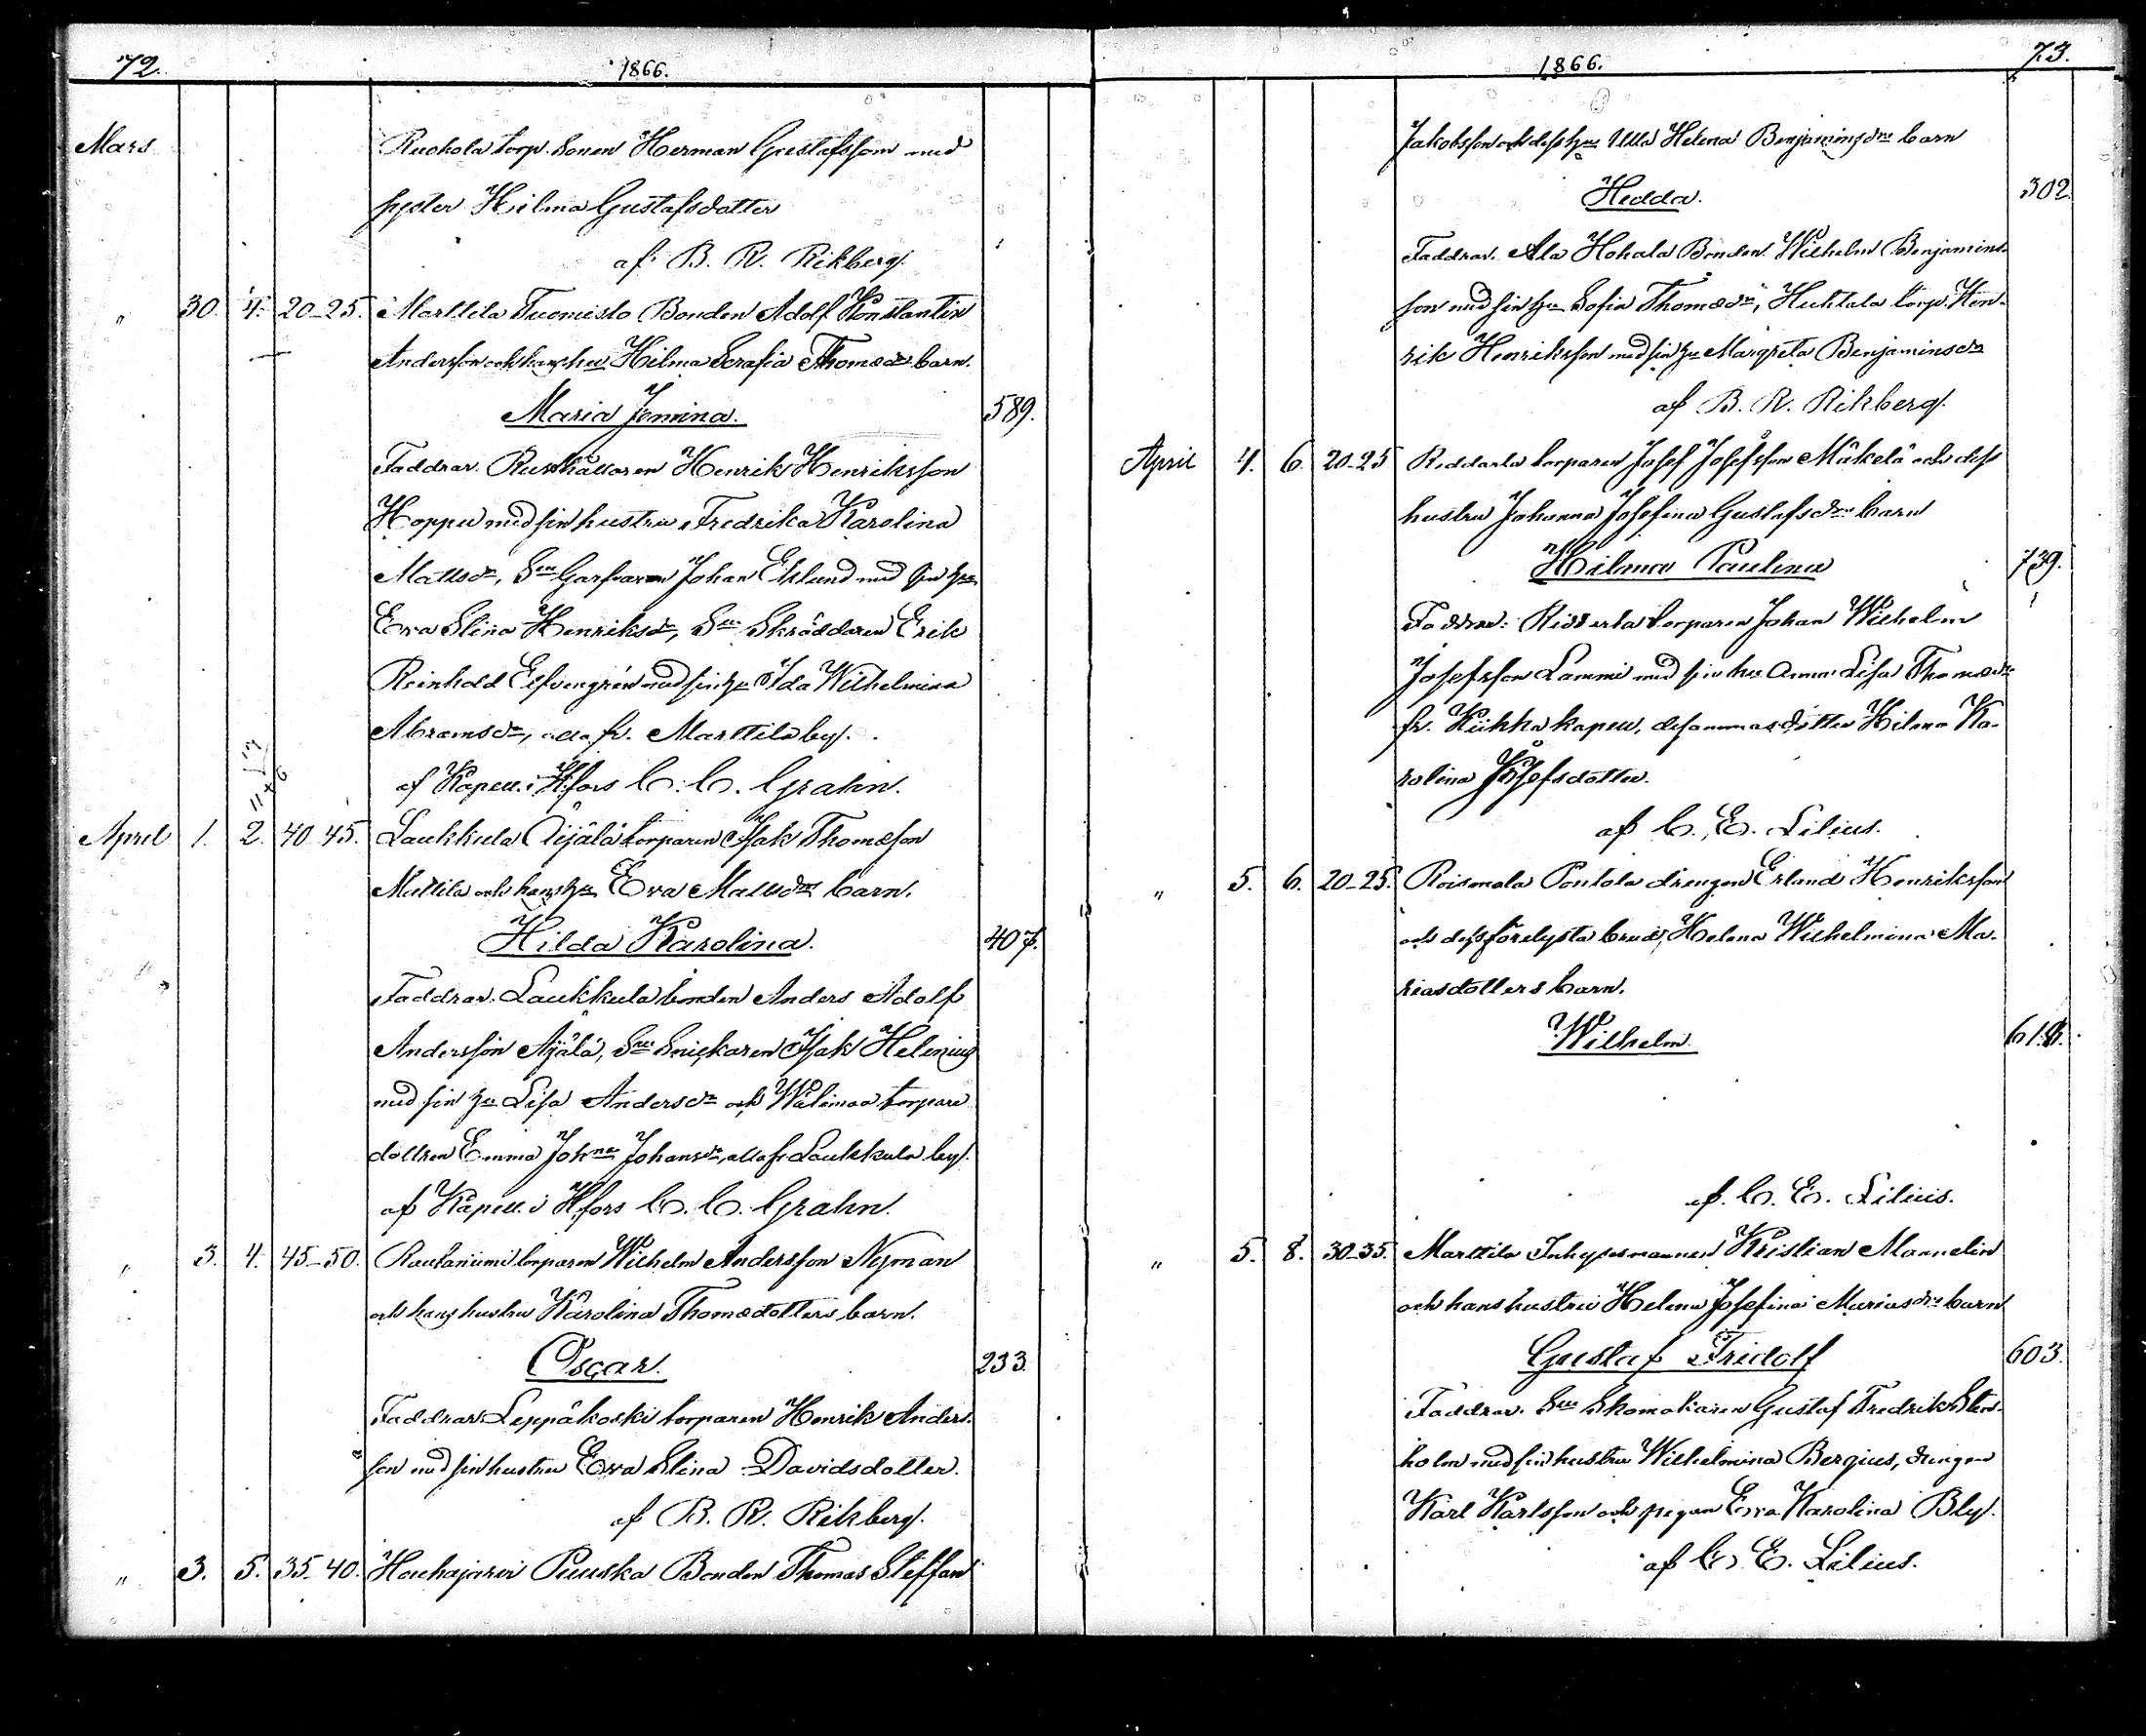 72. 1866.
Mars Ruohola torp. sonen Herman Gustafsson med
syster Hilma Gustafsdotter
af B. R. Rikberg.
" 30. 4. 20-25. Marttila Tuomisto Bonden Adolf Konstantin
Andersson och hans hu Hilma Serafia Thomædrs barn.
Maria Jemina. 589.
Faddrar. Rusthållaren Henrik Henriksson
Hoppu med sin hustru Fredrika Karolina
Mattsdr, Sn Garfvaren Johan Eklund med sin hu
Eva Stina Henriksdr, Sn Skräddaren Erik
Reinhold Elfvengrén med sin hu Ida Wilhelmina
Abramsdr, alla fr. Marttila by.
af Kapell. i Hfors C. C. Grahn.
April 1. 2. 40-45. Laukkula Äijälä torparen Isak Thomæson
Mattila och hans hu Eva Mattsdrs barn.
Hilda Karolina. 407.
Faddrar. Laukkula bonden Anders Adolf
Andersson Äijälä, Sn Snickaren Isak Helenius
med sin hu Lisa Andersdr och Wälimaa torpare
dottren Emma Johna Johansdr, alla fr Laukkula by.
af Kapell. i Hfors C. C. Grahn.
" 3. 4. 45-50. Rautaniimi torparen Wilhelm Andersson Nyman
och hans hustru Karolina Thomædotters barn.
Oscar. 233.
Faddrar: Leppäkoski torparen Henrik Anders-
son med sin hustru Eva Stina Davidsdotter.
af B. R. Rikberg.
" 3. 5. 35-40. Hauhajärvi Puuska Bonden Thomas Steffan
1866. 73.
Jakobsson och dess hu Ulla Helena Benjaminsdrs barn
Hedda. 302.
Faddrar. Ala Hohala Bonden Wilhelm Benjamins-
son med sin hu Sofia Thomædr, Huhtala torp. Hen-
rik Henriksson med sin hu Margreta Benjaminsdr
af B. R. Rikberg.
April 4. 6. 20-25 Riddarla torparen Josef Josefsson Mäkelä och dess
hustru Johanna Josefina Gustafsdrs barn
Hilma Paulina 739.
Faddrar: Ridderla torparen Johan Wilhelm
Josefsson Lammi med sin hu Anna Lisa Thomædr
fr. Kiikka kapell, desammas dotter Hilma Ka-
rolina Josefsdotter.
af C. E. Lilius.
" 5. 6. 20-25. Roismala Pontola drengen Erland Henriksson
och dess förelysta brud, Helena Wilhelmina Ma-
riasdotters barn.
Wilhelm. 618.
af C. E. Lilius.
" 5. 8. 30-35. Marttila Inhysesmannen Kristian Mannelin
och hans hustru Helena Josefina Mariasdrs barn
Gustaf Fridolf 603.
Faddrar. Sn Skomakaren Gustaf Fredrik Sten-
holm med sin hustru Wilhelmina Bergius, drengen
Karl Karlsson och pigan Eva Karolina Bly.
af C. E. Lilius.